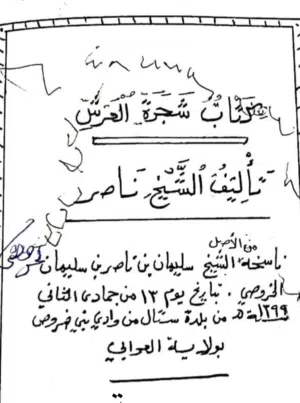 كتاب شجرة العرش
تأليف الشيخ ناصر
من الأصل
ناسخه الشيخ سليمان بن ناصر بن سليمان
الخروصي. بتاريخ يوم ١٣ من جمادى الثاني
سنة ١٣٩٩ هـ من بلدة ستال من وادي بني خروص
بولاية العوابي